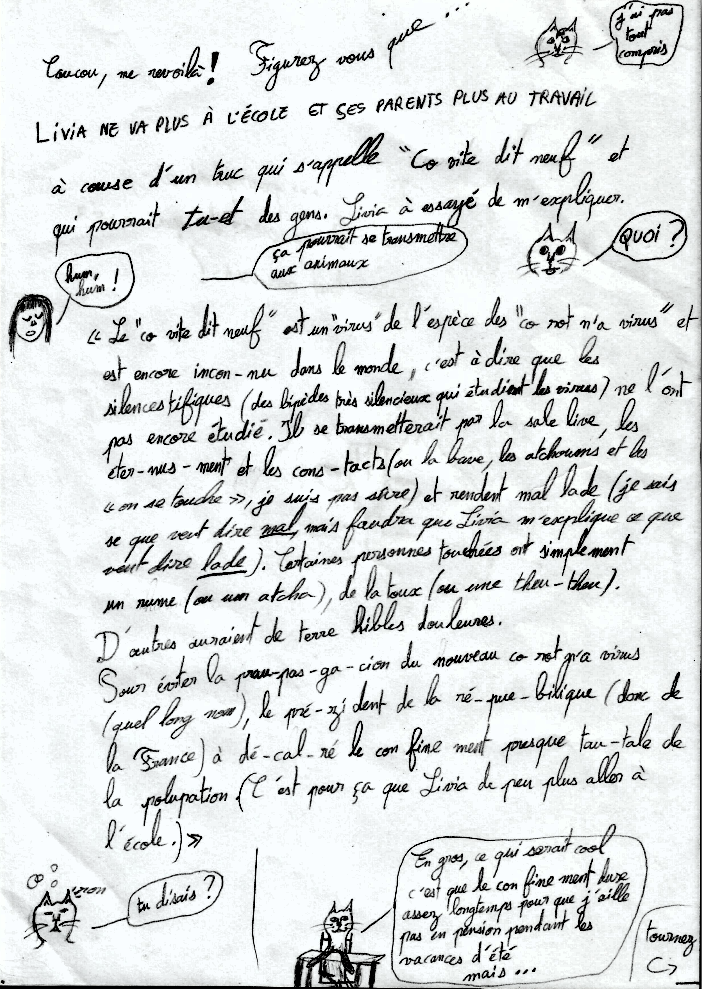 j'ai pas
tout
compris
Coucou, me revoilà! Figurez vous que ...
LIVIA NE VA PLUS À L'ÉCOLE ET SES PARENTS PLUS AU TRAVAIL
à cause d'un truc qui s'appelle "Co vite dit neuf" et
qui pourrait tu-er des gens. Livia à essayé de m'expliquer.
ça pourrait se transmettre
aux animaux
QUOI ?
hum,
hum !
« Le "co vite dit neuf" est un "virus" de l'espèce des "co rot n'a virus" et
est encore incon-nu dans le monde, c'est à dire que les
silencestifiques (des bipèdes très silencieux qui étudient les virus) ne l'ont
pas encore étudié. Ils se transmetterait par la sale live, les
éter-nus-ment et les cons-tacts (ou la bave, les atchoums et les
« on se touche », je suis pas sûre) et rendent mal lade (je sais
se que veut dire mal, mais faudra que Livia m'explique ce que
veut dire lade). Certaines personnes touchées ont simplement
un rume (ou un atcha), de la toux (ou une theu-theu).
D'autres auraient de terre hibles douleures.
Pour éviter la prau-pas-ga-cion du nouveau co rot n'a virus
(quel long nom), le pré-zi dent de la ré-pue-bilique (donc de
la France) à dé-cal-ré le con fine ment presque tau-tale de
la polupation. (C'est pour ça que Livia de peu plus aller à
l'école.) »
tu disais ?
En gros, ce qui serait cool
c'est que le con fine ment dure
assez longtemps pour que j'aille
pas en pension pendant les
vacances d'été
mais ...
tournez